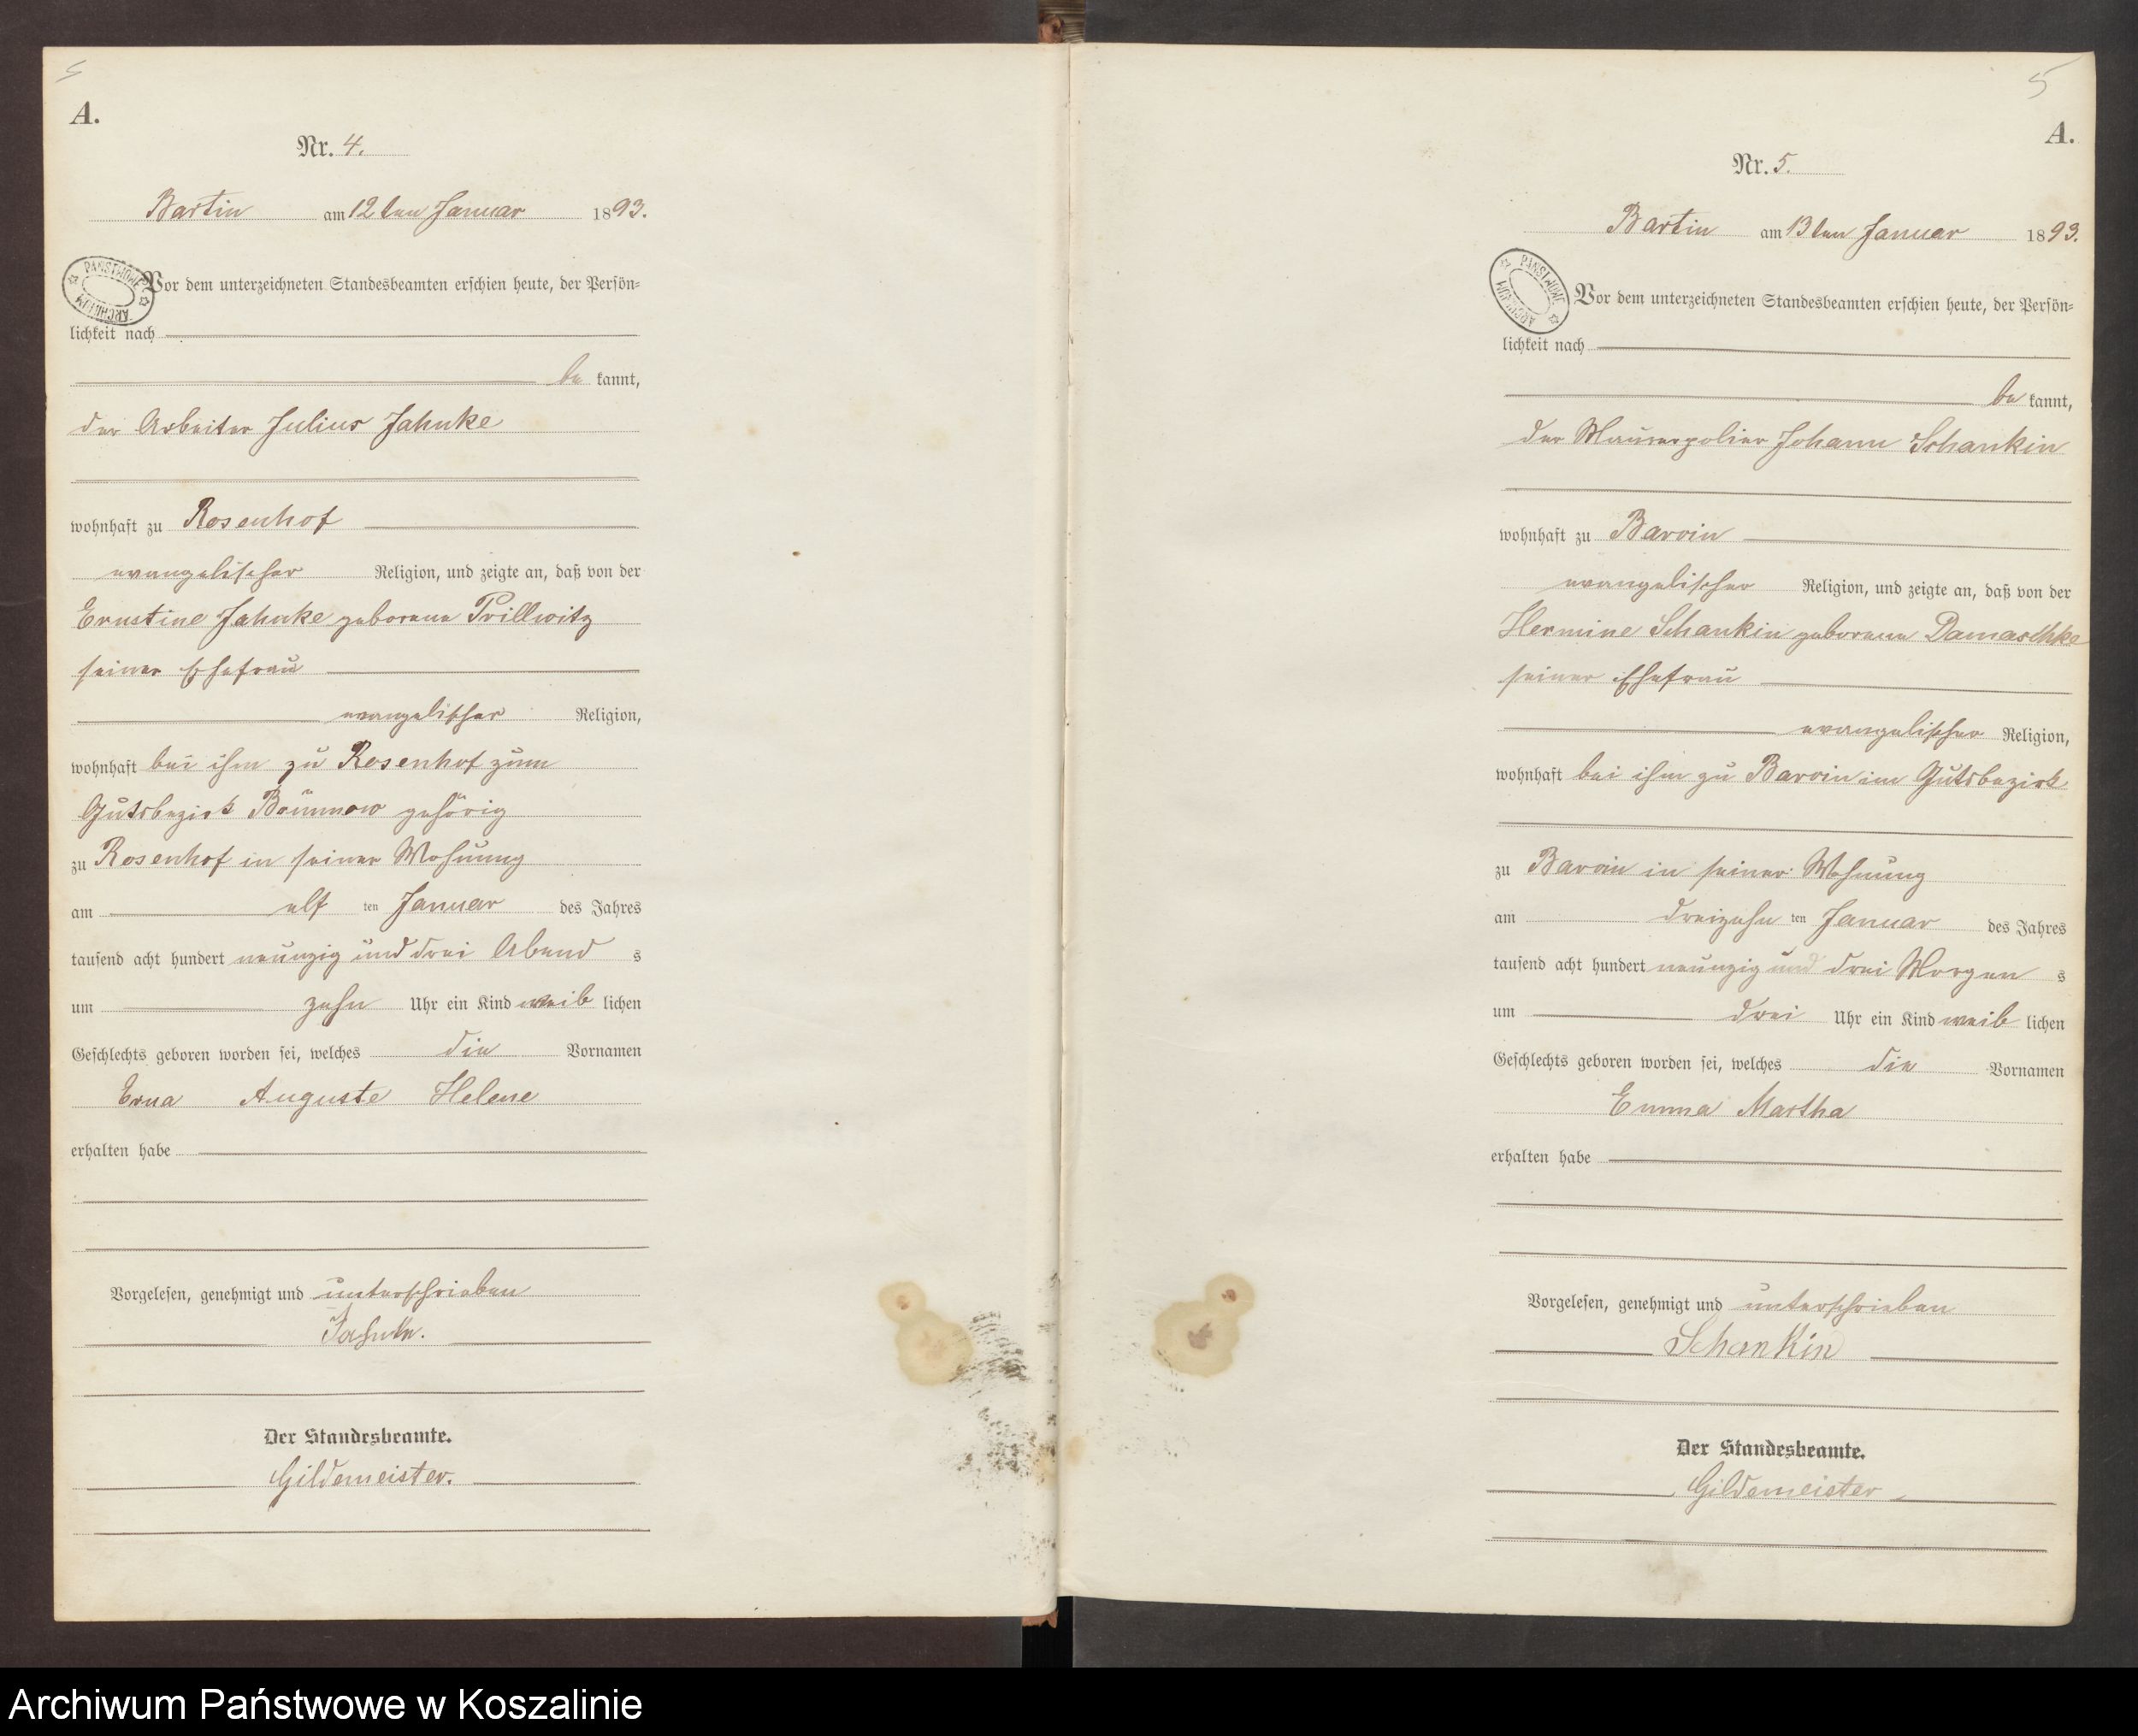 5
A.
Nr. 4.
Bartin am 12ten Januar 1893.
PAŃSTWOWE ARCHIWUM
Vor dem unterzeichneten Standesbeamten erschien heute, der Persön-
lichkeit nach
bekannt,
der Arbeiter Julius Jahnke
wohnhaft zu Rosenhof
evangelischer Religion, und zeigte an, daß von der
Ernstine Jahnke geborene Prillwitz
seiner Ehefrau
evangelischer Religion,
wohnhaft bei ihm zu Rosenhof zum
Gutsbezirk Brünnow gehörig
zu Rosenhof in seiner Wohnung
am elf ten Januar des Jahres
tausend acht hundert neunzig und drei Abend s
um zehn Uhr ein Kind weib lichen
Geschlechts geboren worden sei, welches die Vornamen
Erna Auguste Helene
erhalten habe
Vorgelesen, genehmigt und unterschrieben
Jahnke.
Der Standesbeamte.
Gildemeister.
5
A.
Nr. 5.
Bartin am 13ten Januar 1893.
PAŃSTWOWE ARCHIWUM
Vor dem unterzeichneten Standesbeamten erschien heute, der Persön-
lichkeit nach
bekannt,
der Maurerpolier Johann Schankin
wohnhaft zu Barvin
evangelischer Religion, und zeigte an, daß von der
Hermine Schankin geborene Damaschke
seiner Ehefrau
evangelischer Religion,
wohnhaft bei ihm zu Barvin im Gutsbezirk
zu Barvin in seiner Wohnung
am dreizehn ten Januar des Jahres
tausend acht hundert neunzig und drei Morgen s
um drei Uhr ein Kind weib lichen
Geschlechts geboren worden sei, welches die Vornamen
Emma Martha
erhalten habe
Vorgelesen, genehmigt und unterschrieben
Schankin
Der Standesbeamte.
Gildemeister
Archiwum Państwowe w Koszalinie